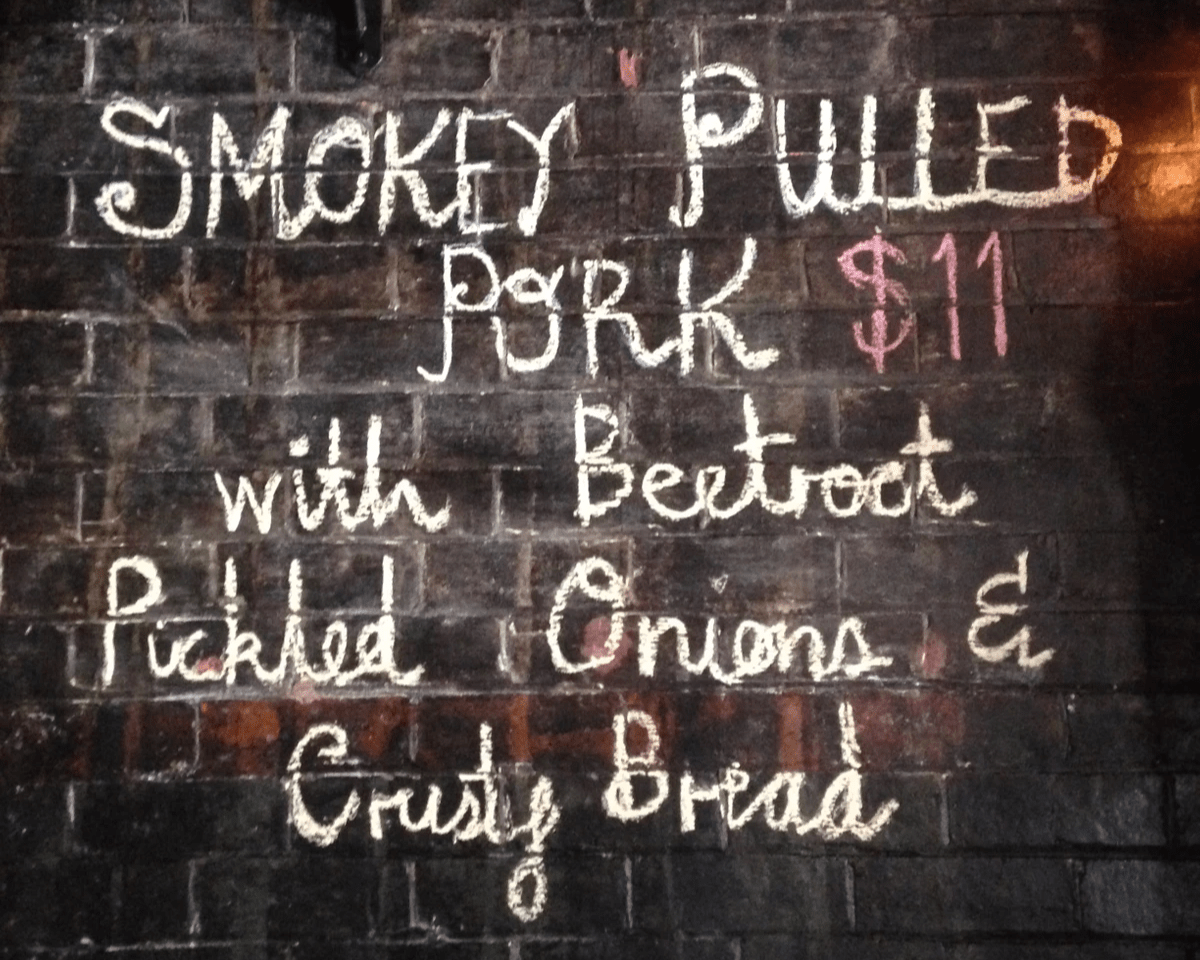 SMOKEY PULLED
PORK $11
with Beetroot
Pickled Onions &
Crusty Bread